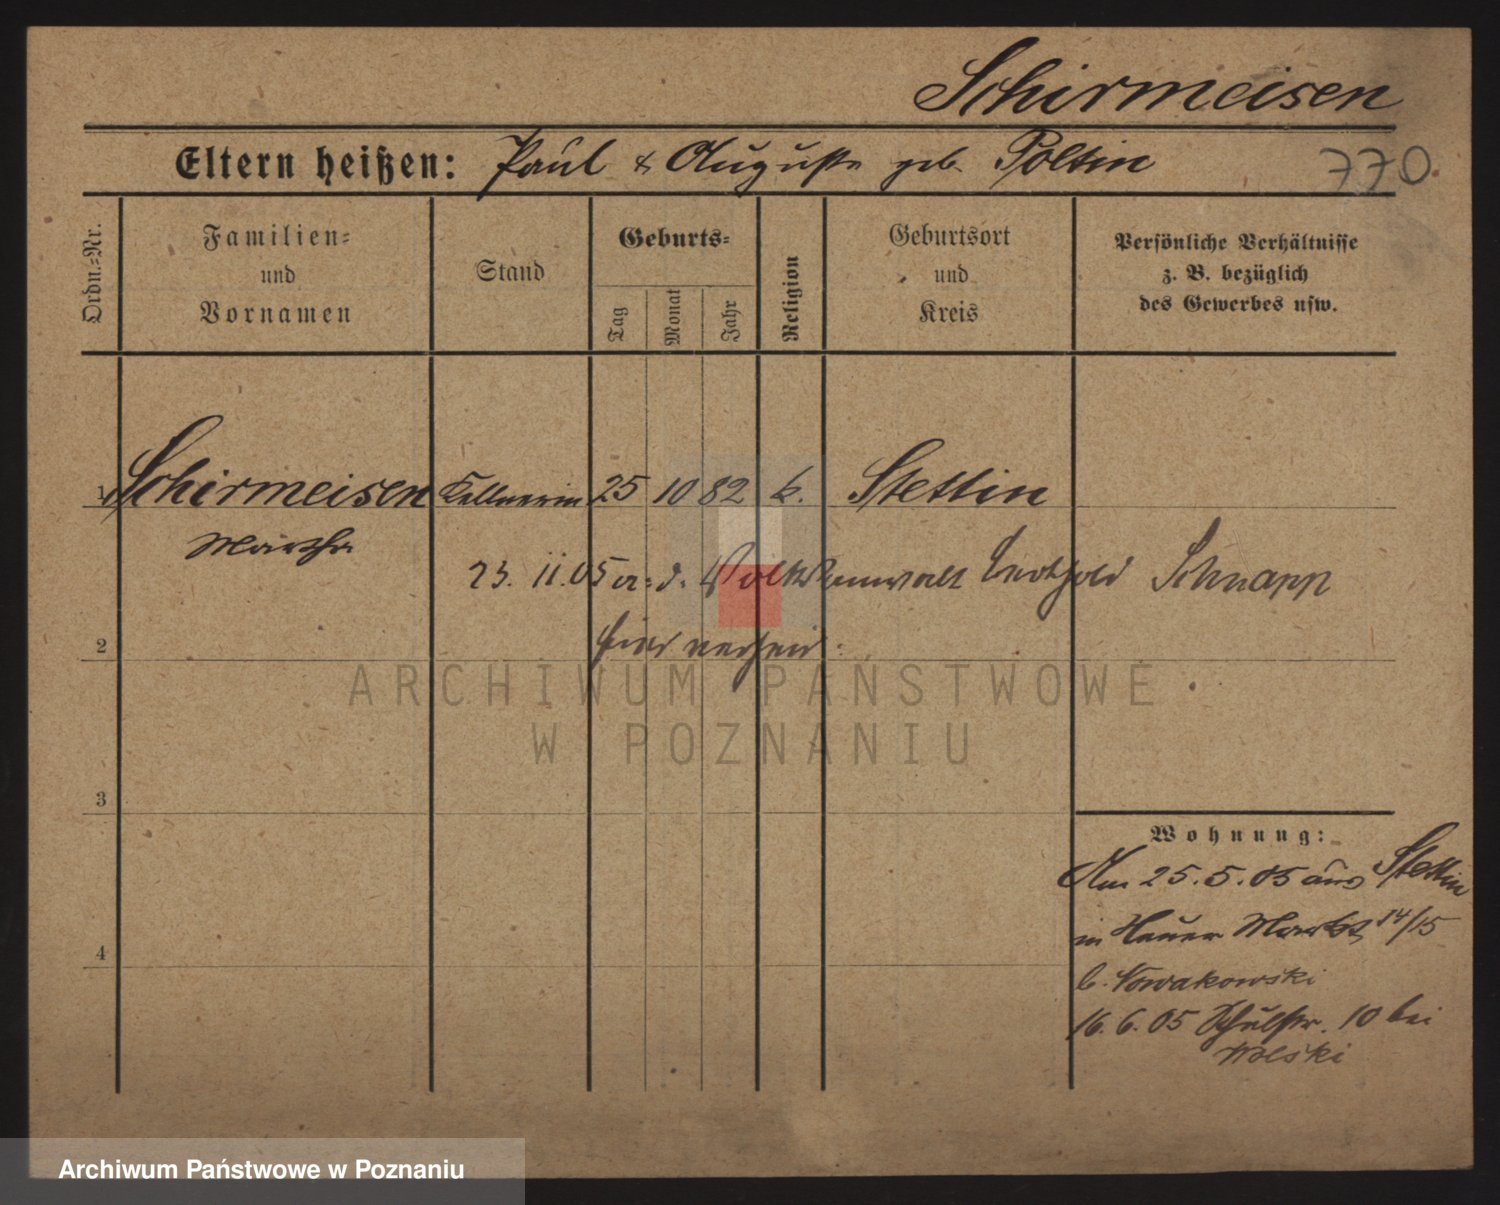 Schirmeisen
Eltern heißen: Paul & Auguste geb. Poltin
770.
Ordn.-Nr.
Familien-
und
Vornamen
Stand
Geburts-
Tag
Monat
Jahr
Religion
Geburtsort
und
Kreis
Persönliche Verhältnisse
z. B. bezüglich
des Gewerbes usw.
1 Schirmeisen Kellnerin 25 10 82 k. Stettin
Martha
23. 11. 05 a. d. Volksanwalt Schnapp
hier verheir.
2
ARCHIWUM PAŃSTWOWE
W POZNANIU
3
Wohnung:
Am 25. 5. 05 aus Stettin
in Neuer Markt 14/15
4
b. Nowakowski
16. 6. 05 Schulstr. 10 bei
Wolski
Archiwum Państwowe w Poznaniu